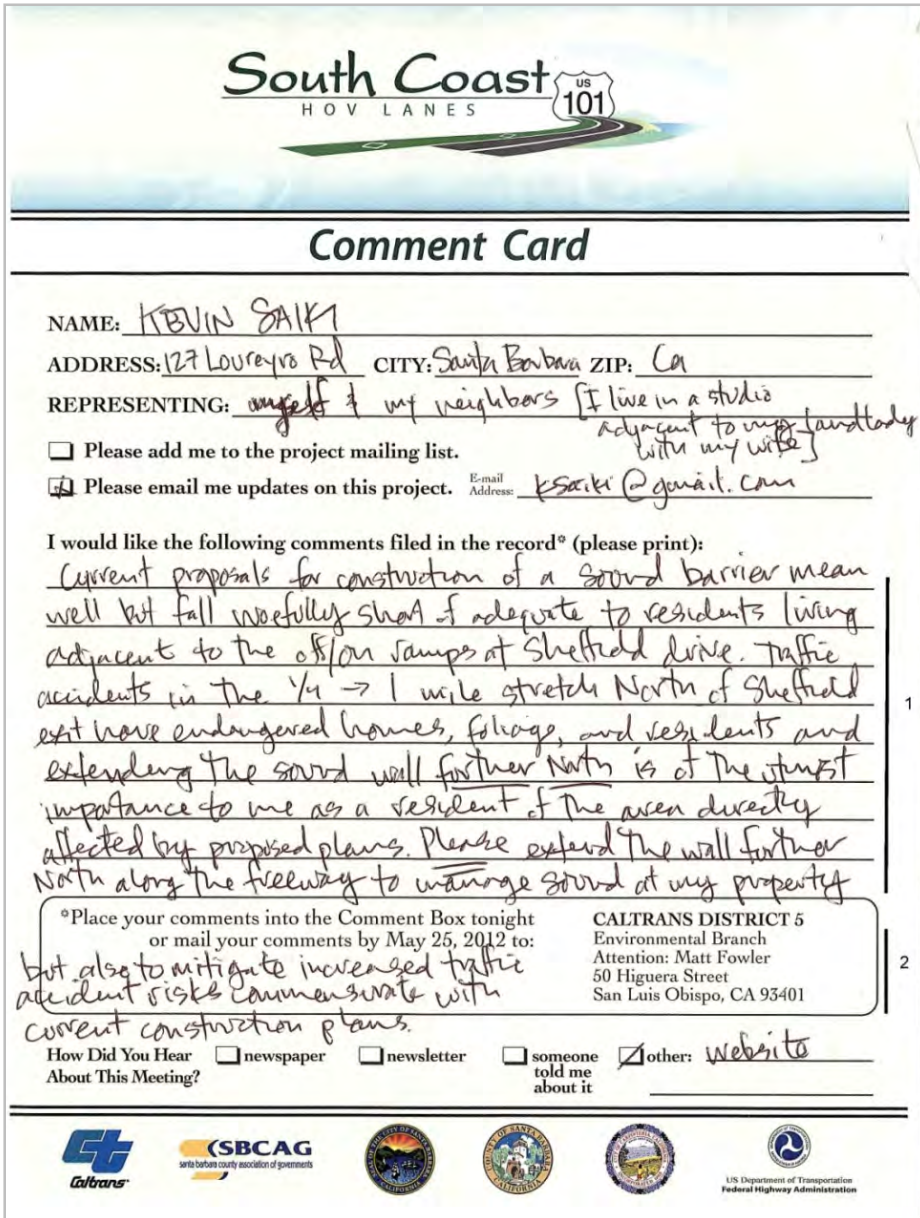 South Coast
HOV LANES
US
101
Comment Card
NAME: KEVIN SAIKI
ADDRESS: 127 Loureyro Rd CITY: Santa Barbara ZIP: Ca
REPRESENTING: myself & my neighbors [I live in a studio
adjacent to my landlady
with my wife]
Please add me to the project mailing list.
Please email me updates on this project. E-mail Address: ksaiki@gmail.com
I would like the following comments filed in the record* (please print):
Current proposals for construction of a sound barrier mean
well but fall woefully short of adequate to residents living
adjacent to the off/on ramps at Sheffield drive. Traffic
accidents in the 1/4 → 1 mile stretch North of Sheffield
exit have endangered homes, foliage, and residents and
extending the sound wall further North is of the utmost
importance to me as a resident of the area directly
affected by proposed plans. Please extend the wall further
North along the freeway to manage sound at my property
1
*Place your comments into the Comment Box tonight
or mail your comments by May 25, 2012 to:
CALTRANS DISTRICT 5
Environmental Branch
Attention: Matt Fowler
50 Higuera Street
San Luis Obispo, CA 93401
but also to mitigate increased traffic
accident risks commensurate with
current construction plans.
2
How Did You Hear
About This Meeting?
newspaper
newsletter
someone
told me
about it
other: website
Caltrans
SBCAG
santa barbara county association of governments
US Department of Transportation
Federal Highway Administration